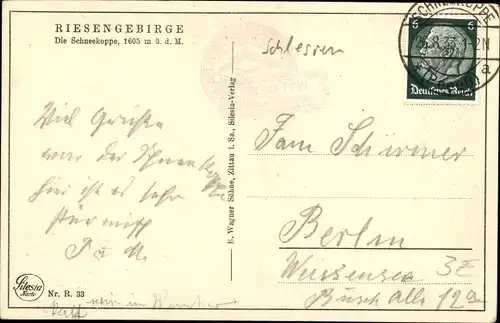 RIESENGEBIRGE
Die Schneekoppe, 1605 m ü. d. M.
Schlesien
SCHNEEKOPPE
6 6
Deutsches Reich
Viel Grüße
von der Schneekoppe
hier ist es sehr
stürmisch
E. Wagner Söhne, Zittau i. Sa., Silesia-Verlag
Fam Schirmer
Berlin
Weissensee
Busch Alle 12a
Silesia
Karte
Nr. R. 33